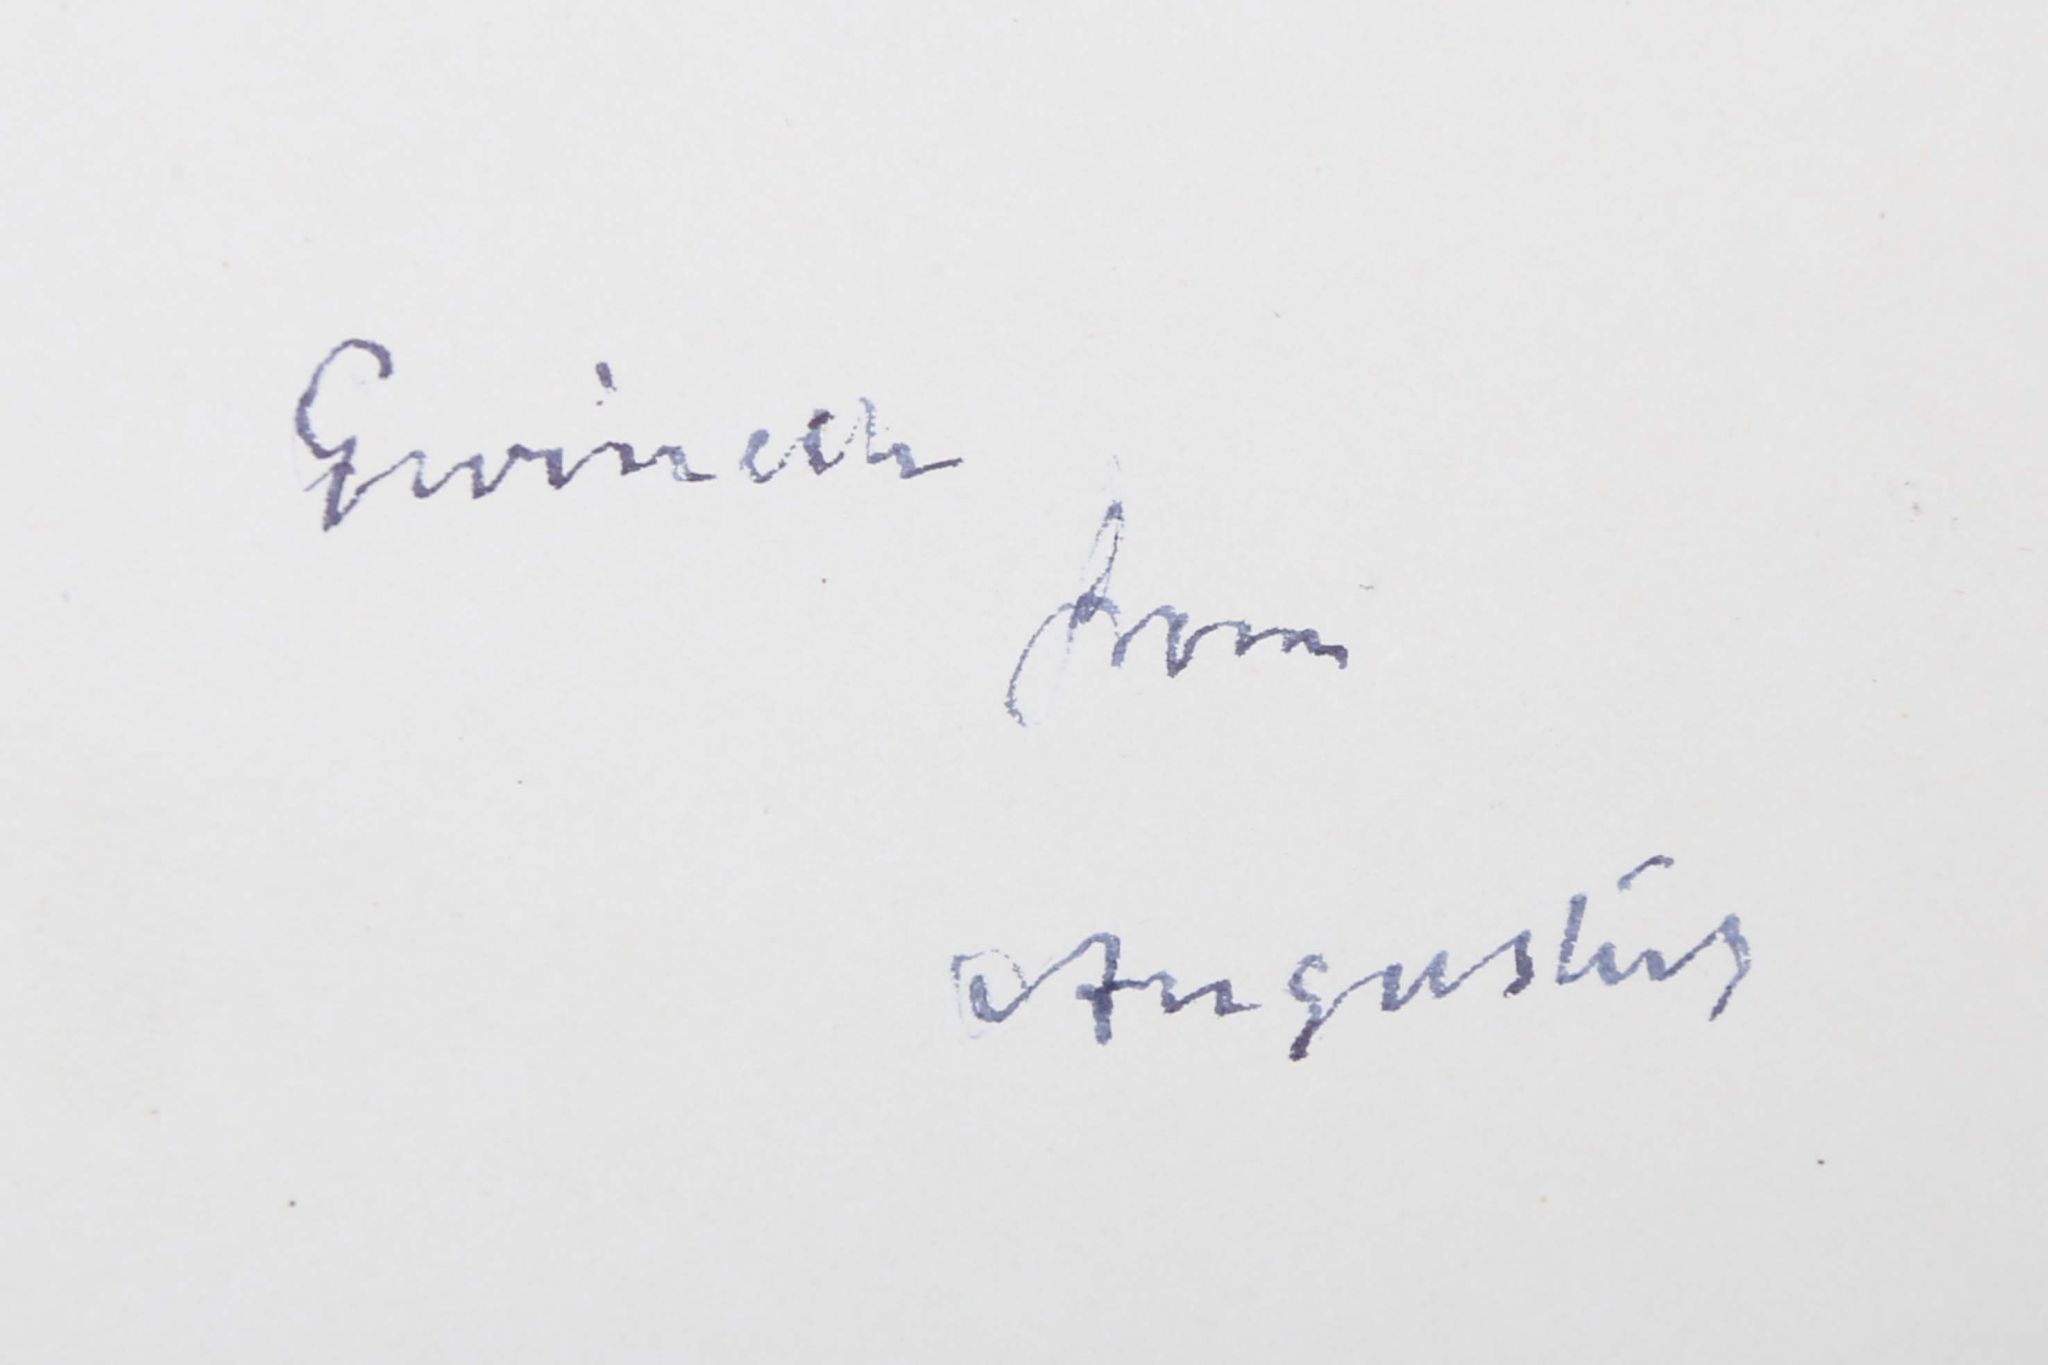 Gwineth
from
Augustus